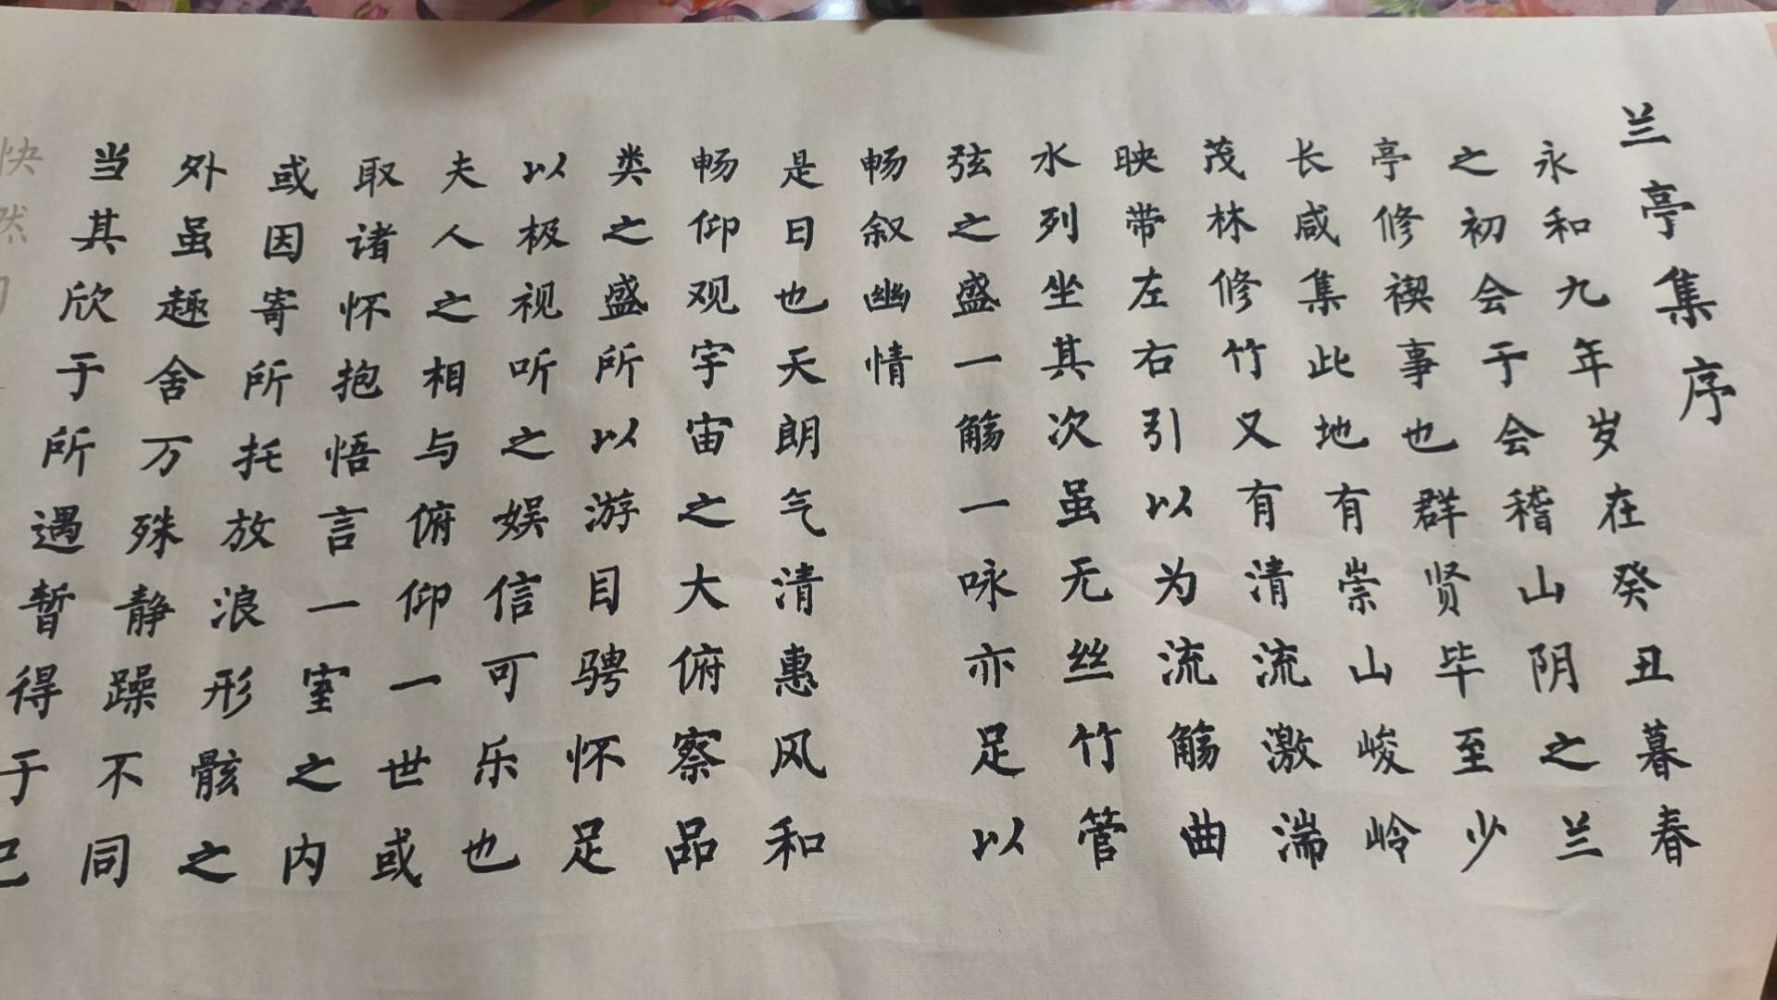 兰亭集序
永和九年岁在癸丑暮春
之初会于会稽山阴之兰
亭修禊事也群贤毕至少
长咸集此地有崇山峻岭
茂林修竹又有清流激湍
映带左右引以为流觞曲
水列坐其次虽无丝竹管
弦之盛一觞一咏亦足以
畅叙幽情
是日也天朗气清惠风和
畅仰观宇宙之大俯察品
类之盛所以游目骋怀足
以极视听之娱信可乐也
夫人之相与俯仰一世或
取诸怀抱悟言一室之内
或因寄所托放浪形骸之
外虽趣舍万殊静躁不同
当其欣于所遇暂得于己
快然